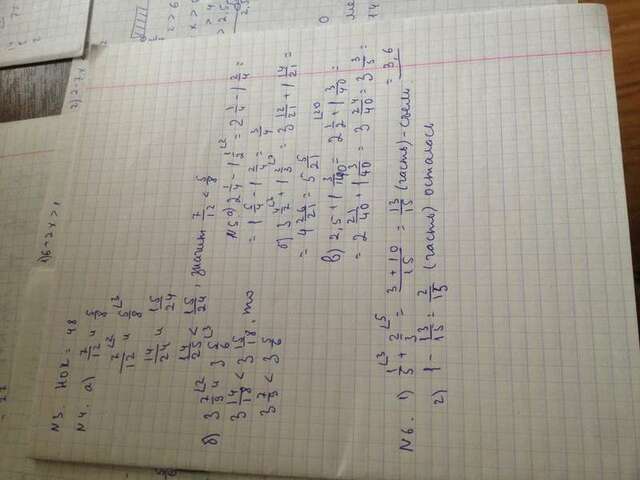 1) 6 > 2x > 1
2) 2 - 7x
N3. НОК = 48
N4. а) 7/12 и 5/8
7/12 ∟2 и 5/8 ∟3
14/24 и 15/24
14/25 < 15/24, значит 7/12 < 5/8
б) 3 7/9 ∟2 и 3 5/6 ∟3
3 14/18 < 3 15/18, то
3 7/9 < 3 5/6
N5 а) 2 1/4 - 1 1/2 ∟2 = 2 1/4 - 1 2/4 =
= 1 5/4 - 1 2/4 = 3/4
б) 3 4/7 ∟3 + 1 2/3 = 3 12/21 + 1 14/21 =
= 4 26/21 = 5 5/21
в) 2,5 + 1 3/40 = 2 1/2 ∟20 + 1 3/40 =
= 2 21/40 + 1 3/40 = 3 24/40 = 3 3/5 =
= 3,6
N6. 1) 1/5 ∟3 + 2/3 ∟5 = 3 + 10/15 = 13/15 (часть) - съели
2) 1 - 13/15 = 2/15 (часть) осталась